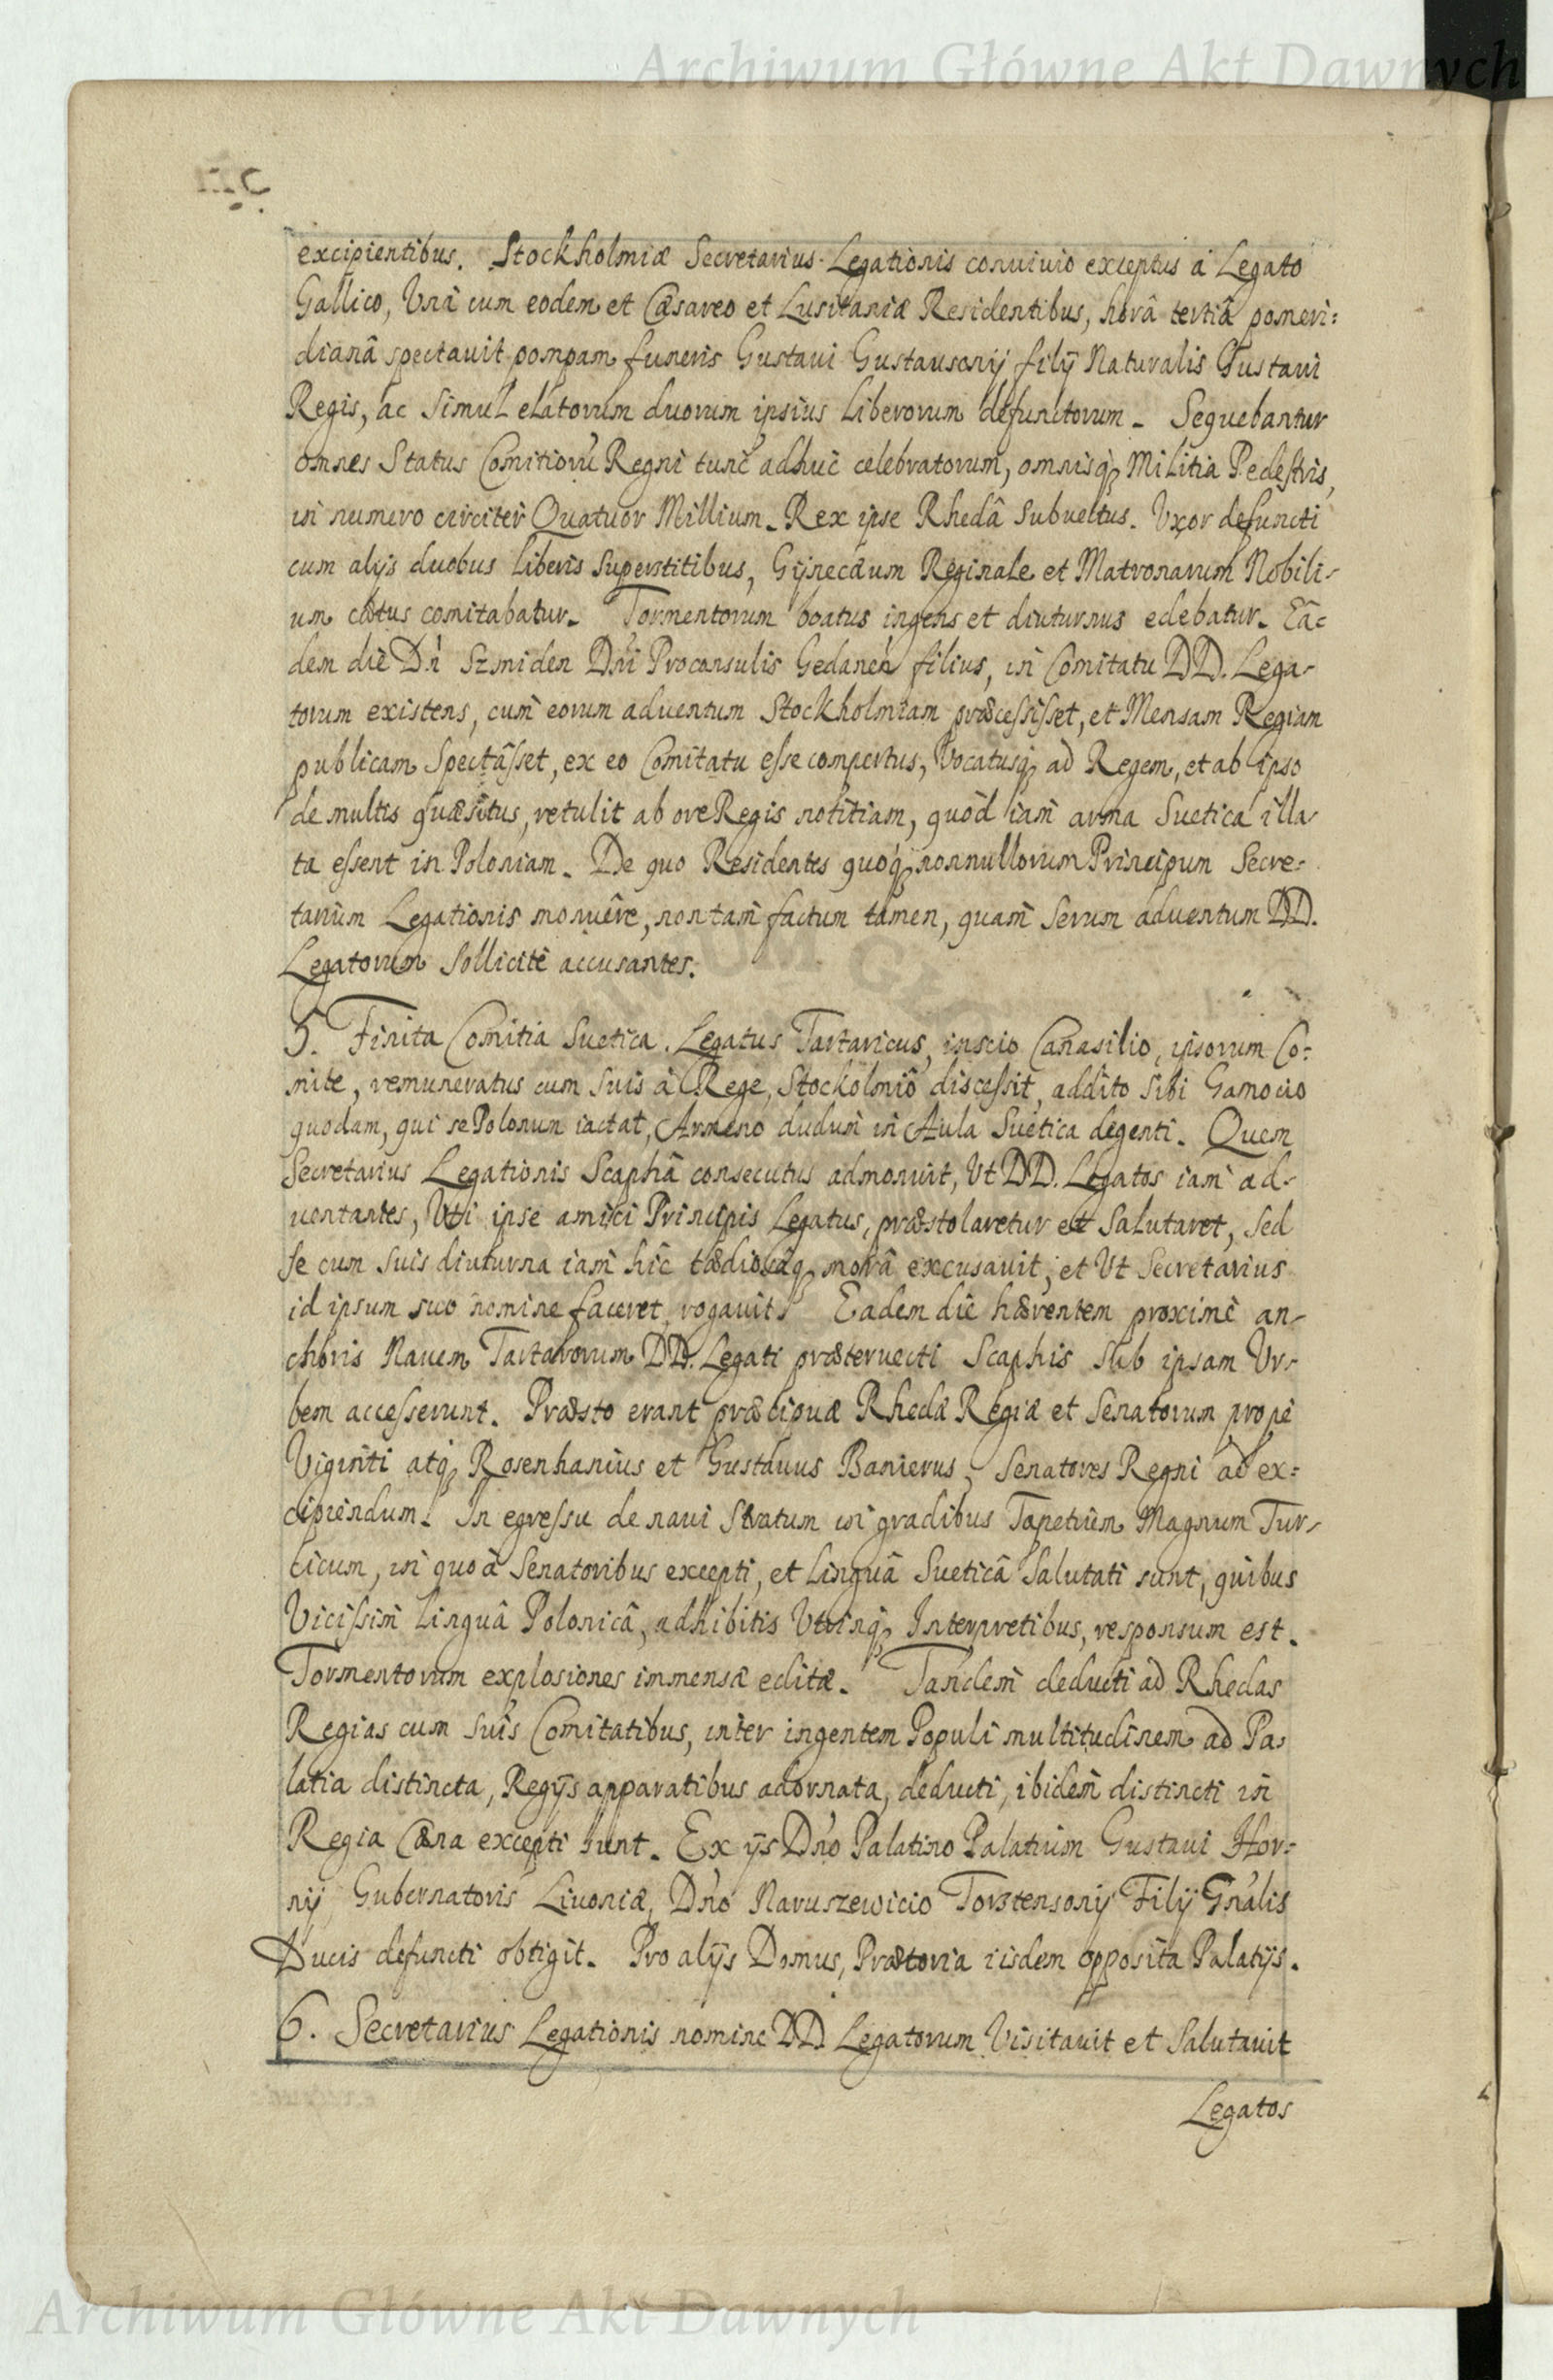 Archiwum Główne Akt Dawnych
excipientibus. Stockholmiæ Secretarius Legationis conuiuio exceptus à Legato
Gallico, Unà cum eodem et Cæsareo et Lusitaniæ Residentibus, horâ tertiâ pomeri:
dianâ spectauit pompam funeris Gustaui Gustausonij filij Naturalis Gustaui
Regis, ac simul elatorum duorum ipsius liberorum defunctorum. Sequebantur
omnes Status Comitiorũ Regni tunc adhuc celebratorum, omnisq; Militia Pedestris,
in numero circiter Quatuor Millium. Rex ipse Rhedâ subuectus. Uxor defuncti
cum alijs duobus liberis superstitibus, Gijnecæum Reginale et Matronarum Nobili-
um cœtus comitabatur. Tormentorum boatus ingens et diuturnus edebatur. Eâ-
dem die Dn̄ Szmiden Dn̄i Proconsulis Gedanen̄ filius, in Comitatu DD. Lega-
torum existens, cum eorum aduentum Stockholmiam præcessisset, et Mensam Regiam
publicam Spectâsset, ex eo Comitatu esse compertus, Vocatusq; ad Regem, et ab ipso
de multis quæsitus, retulit ab ore Regis notitiam, quòd iam arma Suetica illa-
ta essent in Poloniam. De quo Residentes quoq; nonnullorum Principum Secre-
tarium Legationis monuêre, non tam factum tamen, quam serum aduentum DD.
Legatorum sollicitè accusantes.
5. Finita Comitia Suetica. Legatus Tartaricus, inscio Canasilio, ipsorum Co:
mite, remuneratus cum suis à Rege, Stockolmiô discessit, addito sibi Gamocio
quodam, qui se Polonum iactat, Armeno dudum in Aula Suetica degenti. Quem
Secretarius Legationis Scaphâ consecutus admonuit, Ut DD. Legatos iam ad-
uentantes, Uti ipse amici Principis Legatus, præstolaretur et salutaret, sed
se cum suis diuturna iam hîc tædiosâq; morâ excusauit, et Ut Secretarius
id ipsum suo nomine faceret, rogauit. Eadem die hærentem proximè an-
choris Nauem Tartarorum DD. Legati præteruecti Scaphis sub ipsam Ur-
bem accesserunt. Præsto erant præcipuæ Rhedæ Regiæ et Senatorum propè
Viginti atq; Rosenhanius et Gustauus Banierus, Senatores Regni ad ex=
cipiendum. In egressu de naui Stratum in gradibus Tapetium Magnum Tur-
cicum, in quo à Senatoribus excepti, et Linguâ Sueticâ Salutati sunt, quibus
Vicissim linguâ Polonicâ, adhibitis Utrinq; Interpretibus, responsum est.
Tormentorum explosiones immensæ editæ. Tandem deducti ad Rhedas
Regias cum suis Comitatibus, inter ingentem Populi multitudinem ad Pa-
latia distincta, Regijs apparatibus adornata, deducti, ibidem distincti in
Regia Cæna excepti sunt. Ex ijs Dn̄o Palatino Palatium Gustaui Hor=
nij Gubernatoris Liuoniæ, Dn̄o Naruszewicio Torstensonij Filij Gn̄alis
Ducis defuncti obtigit. Pro alijs Domus, Prætoria iisdem opposita Palatijs.
6. Secretarius Legationis nomine DD Legatorum Visitauit et Salutauit
Legatos
Archiwum Główne Akt Dawnych